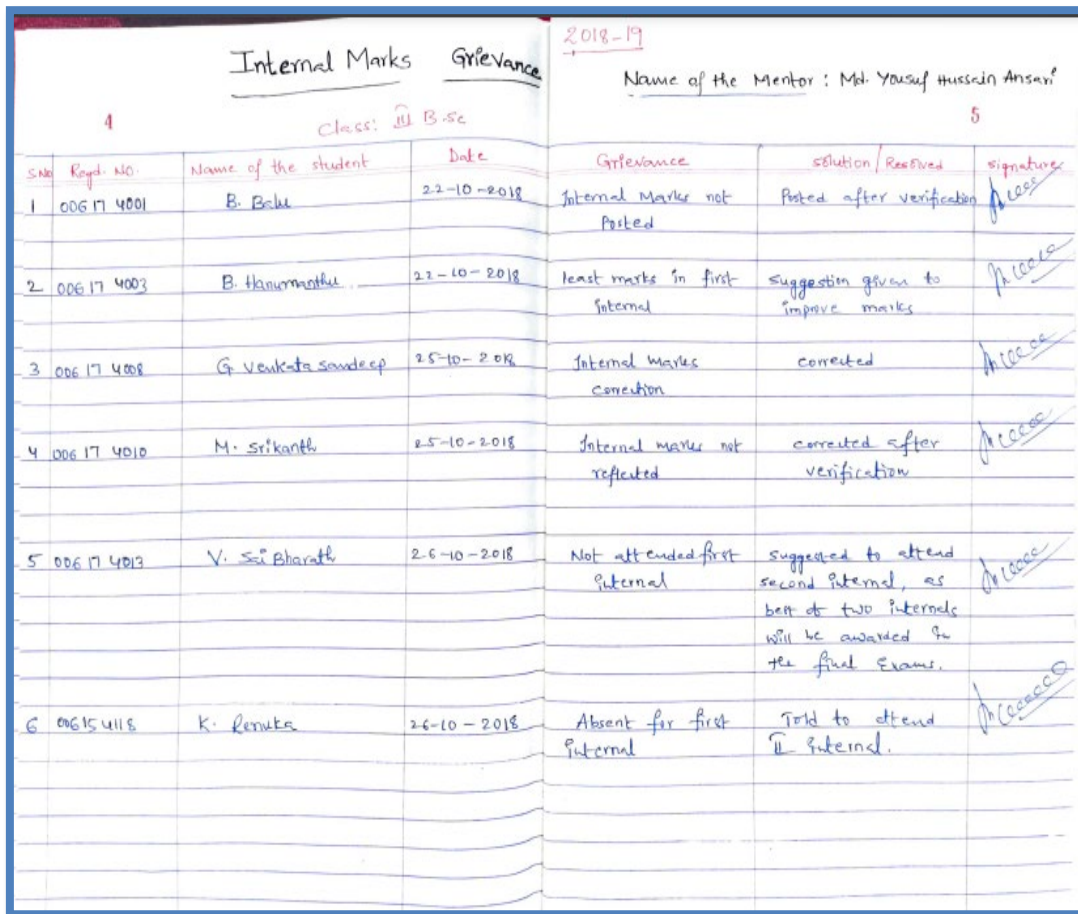 2018-19
Internal Marks Grievance
Name of the Mentor : Md. Yousuf Hussain Ansari
4
5
Class: III B.Sc
S.No Regd. No. Name of the student Date Grievance solution/Resolved signature
1 006 17 4001 B. Balu 22-10-2018 Internal Marks not Posted after verification
Posted
2 006 17 4003 B. Hanumanthu 22-10-2018 least marks in first suggestion given to
internal improve marks
3 006 17 4008 G Venkata Sandeep 25-10-2018 Internal marks corrected
correction
4 006 17 4010 M. Srikanth 25-10-2018 Internal marks not corrected after
reflected verification
5 006 17 4013 V. Sai Bharath 26-10-2018 Not attended first suggested to attend
internal second internal, as
best of two internels
will be awarded in
the final Exams.
6 006154118 K. Renuka 26-10-2018 Absent for first Told to attend
internal II internal.